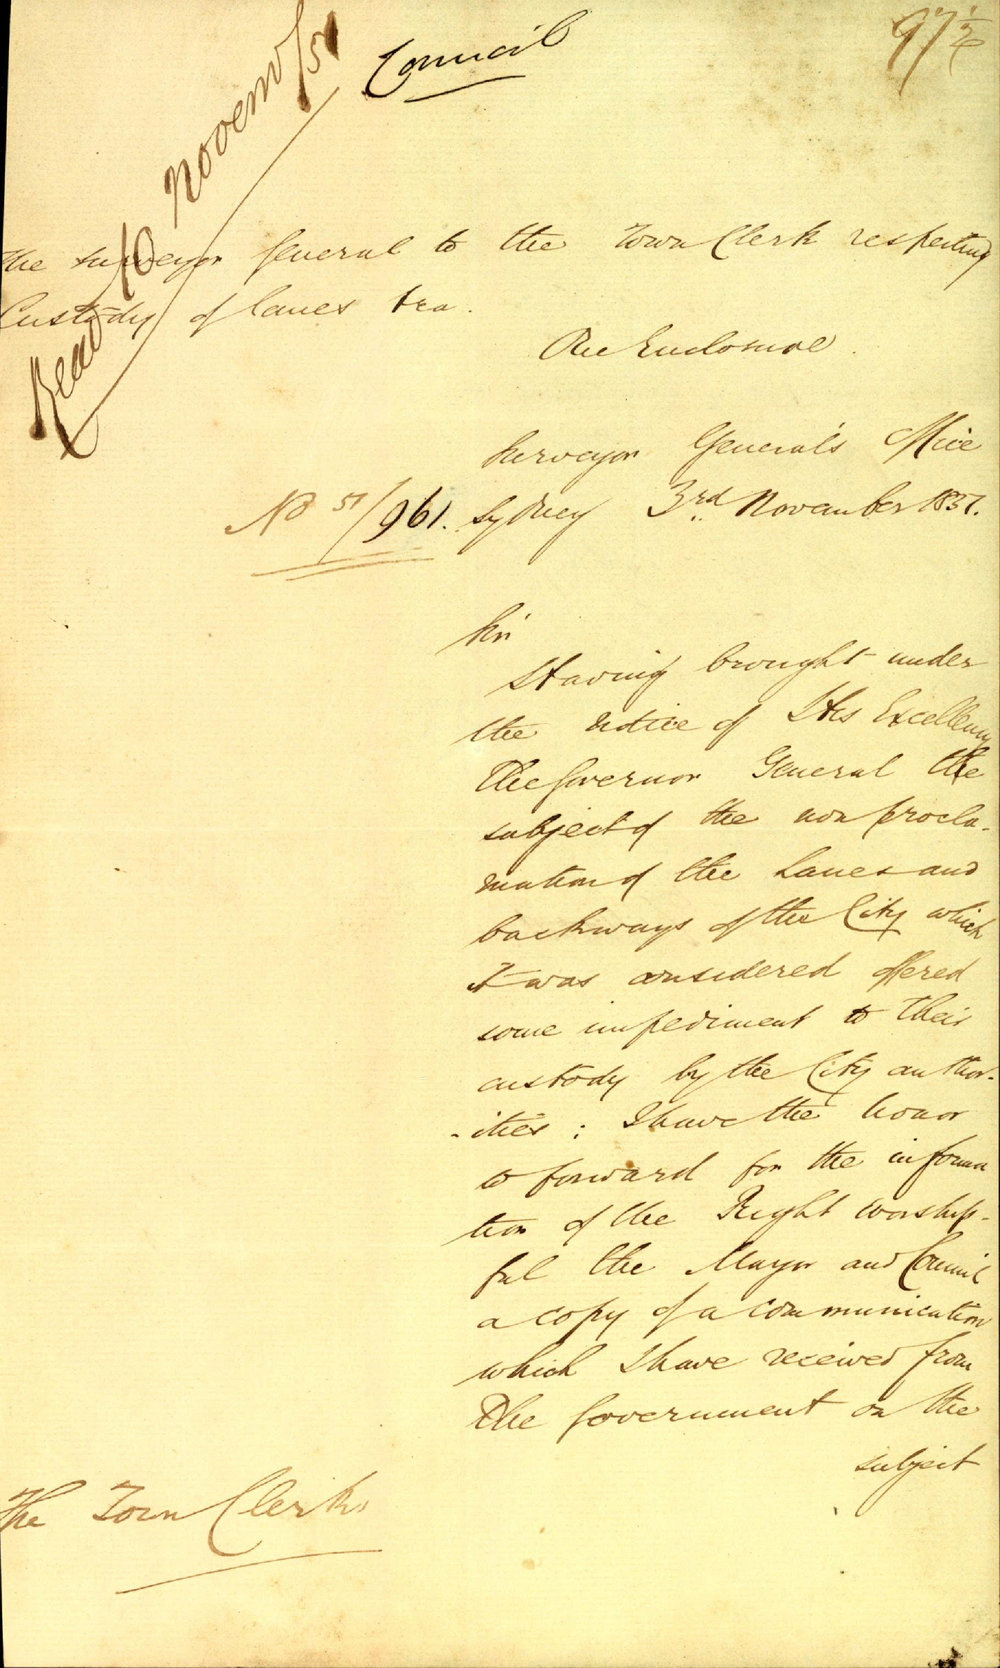 97 1/2
Council
Read 10 Novem/51
The Surveyor General to the Town Clerk respecting
Custody of Lanes &ca.
One Enclosure.
Surveyor General's Office
No 51/961. Sydney 3rd November 1851.
Sir
Having brought under
the notice of His Excellency
The Governor General the
subject of the non procla-
mation of the Lanes and
backways of the City which
it was considered offered
some impediment to their
custody by the City author-
-ities; I have the honor
to forward for the informa
tion of the Right Worship-
ful the Mayor and Council
a copy of a communication
which I have received from
The Government on the
subject
The Town Clerk